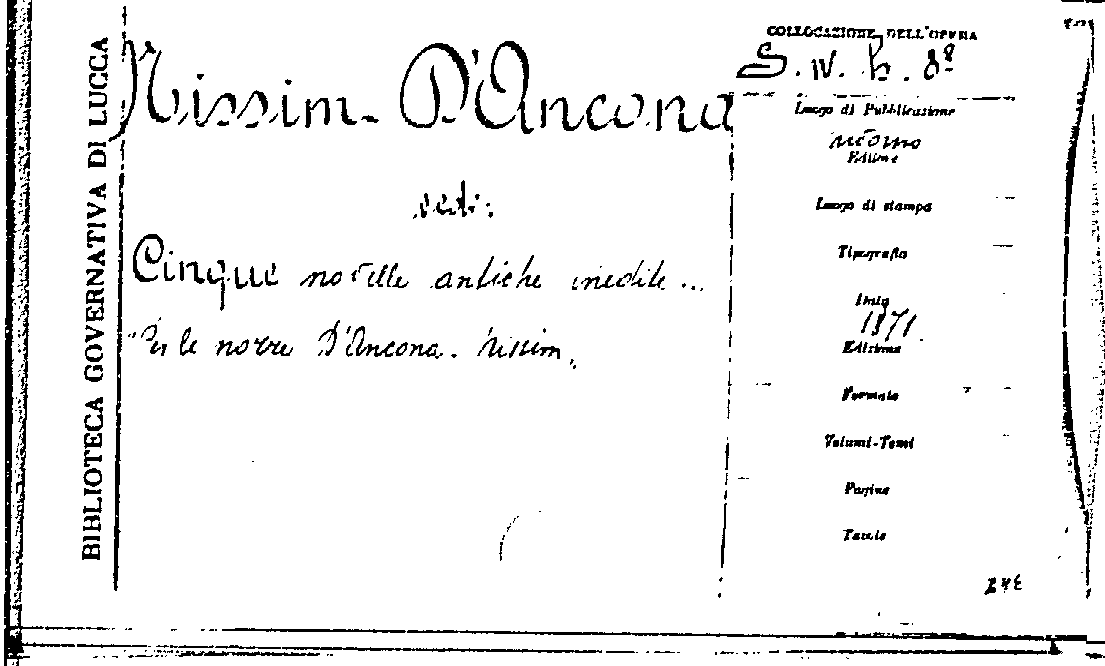 BIBLIOTECA GOVERNATIVA DI LUCCA
Nissim - D'Ancona
vedi:
Cinque novelle antiche inedite ...
Per le nozze D'Ancona - Nissim.
COLLOCAZIONE DELL'OPERA
S. IV. h. 8º
Luogo di Pubblicazione
Editore
Luogo di stampa
Tipografia
Data
1871.
Edizione
Formato
Volumi-Tomi
Pagine
Tavole